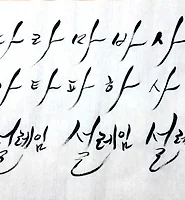 다 라 마 바 사
아 타 파 하 사
설레임 설레임 설레